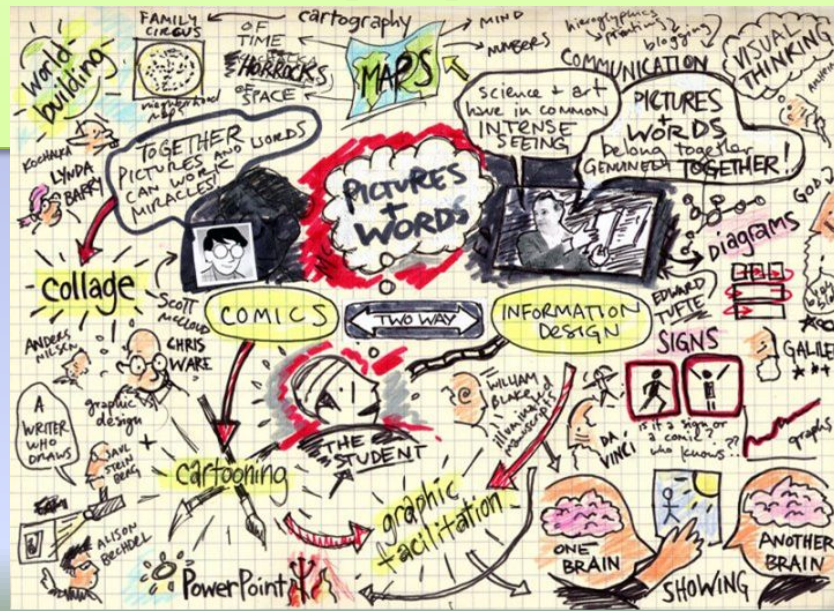 world-
building-
FAMILY
CIRCUS
neighborhood
maps
OF
TIME
HORROCKS
OF
SPACE
cartography
MAPS
MIND
NUMBERS
COMMUNICATION
hieroglyphics
printing
blogging
VISUAL
THINKING
KOCHALKA
LYNDA
BARRY
TOGETHER
PICTURES AND WORDS
CAN WORK
MIRACLES!
PICTURES
+
WORDS
science + art
have in common
INTENSE
SEEING
PICTURES
+
WORDS
belong together
GENUINELY TOGETHER!
collage
SCOTT
MCCLOUD
COMICS
TWO WAY
INFORMATION
DESIGN
EDWARD
TUFTE
Diagrams
SIGNS
ANDERS
NILSEN
CHRIS
WARE
graphic
design
A
WRITER
WHO
DRAWS
+
SAUL
STEIN
BERG
cartooning
THE
STUDENT
WILLIAM
BLAKE
illuminated
manuscripts
DA
VINCI
is it a sign or
a comic?
who knows??
graphs
ALISON
BECHDEL
PowerPoint
graphic
facilitation
ONE
BRAIN
SHOWING
ANOTHER
BRAIN